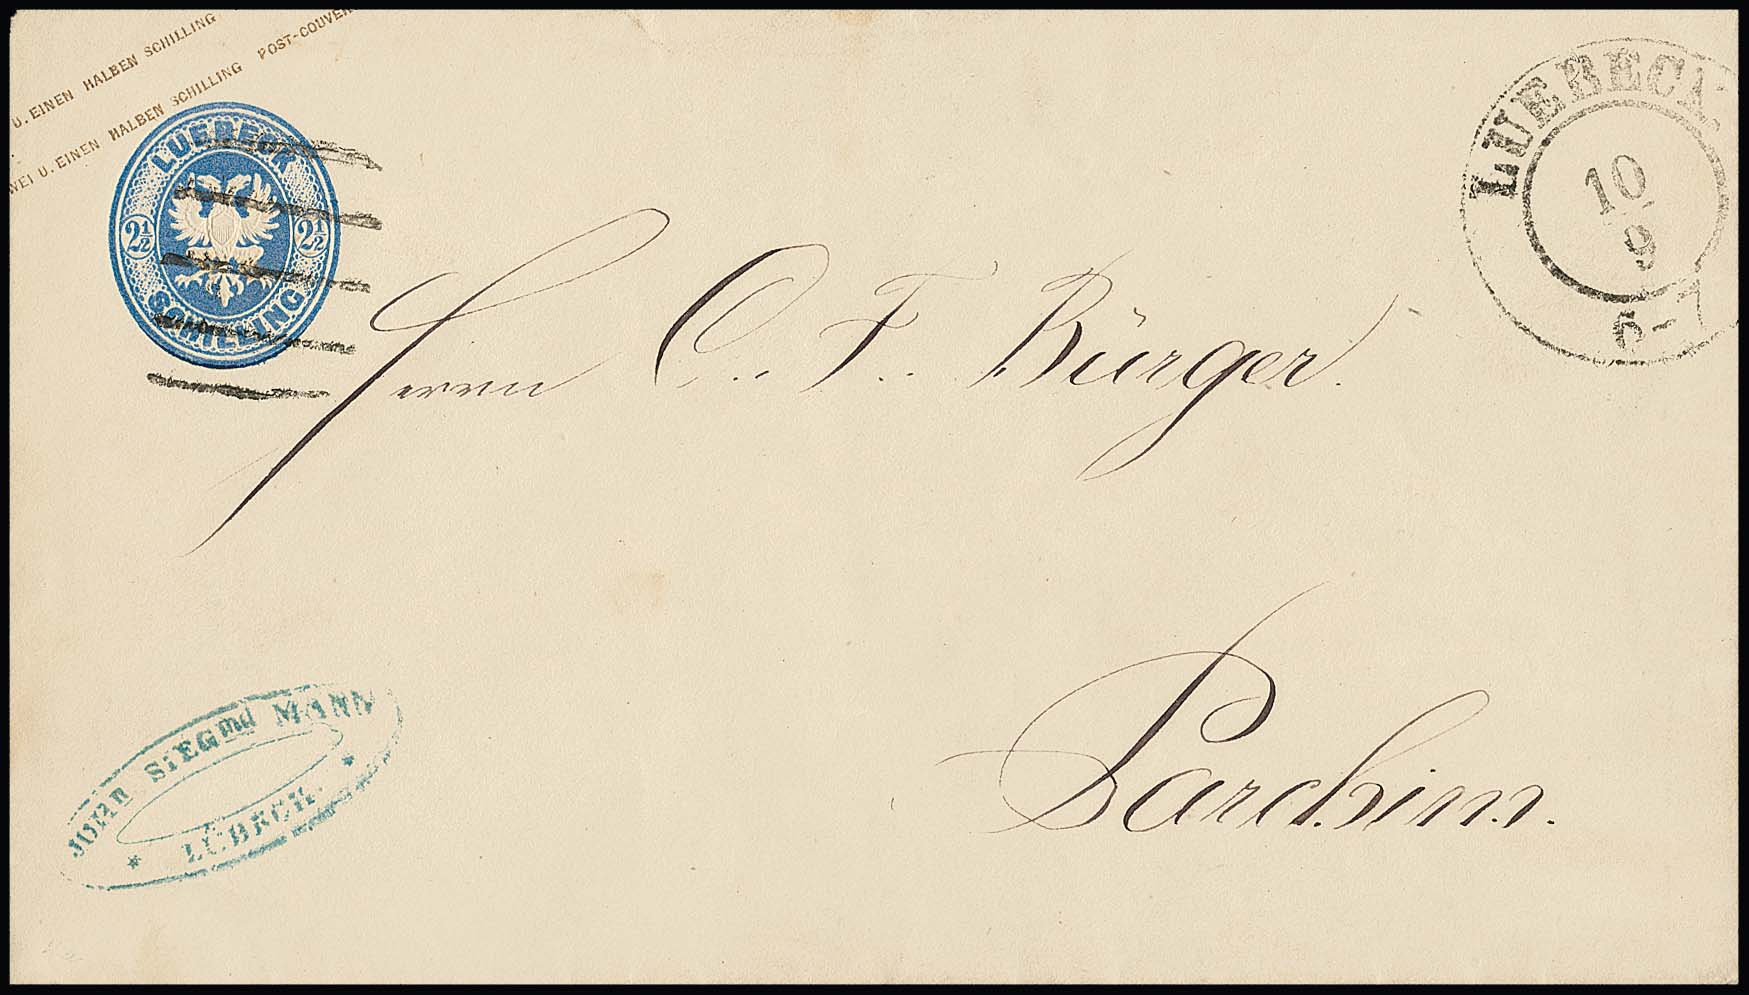 U. EINEN HALBEN SCHILLING
POST-COUVER
WEI U. EINEN HALBEN SCHILLING
LUEBECK
2½ 2½
SCHILLING
LUEBECK
10
9
5-7
Herrn C. F. Bürger.
Parchim.
SIEGmd MANN
LÜBECK.